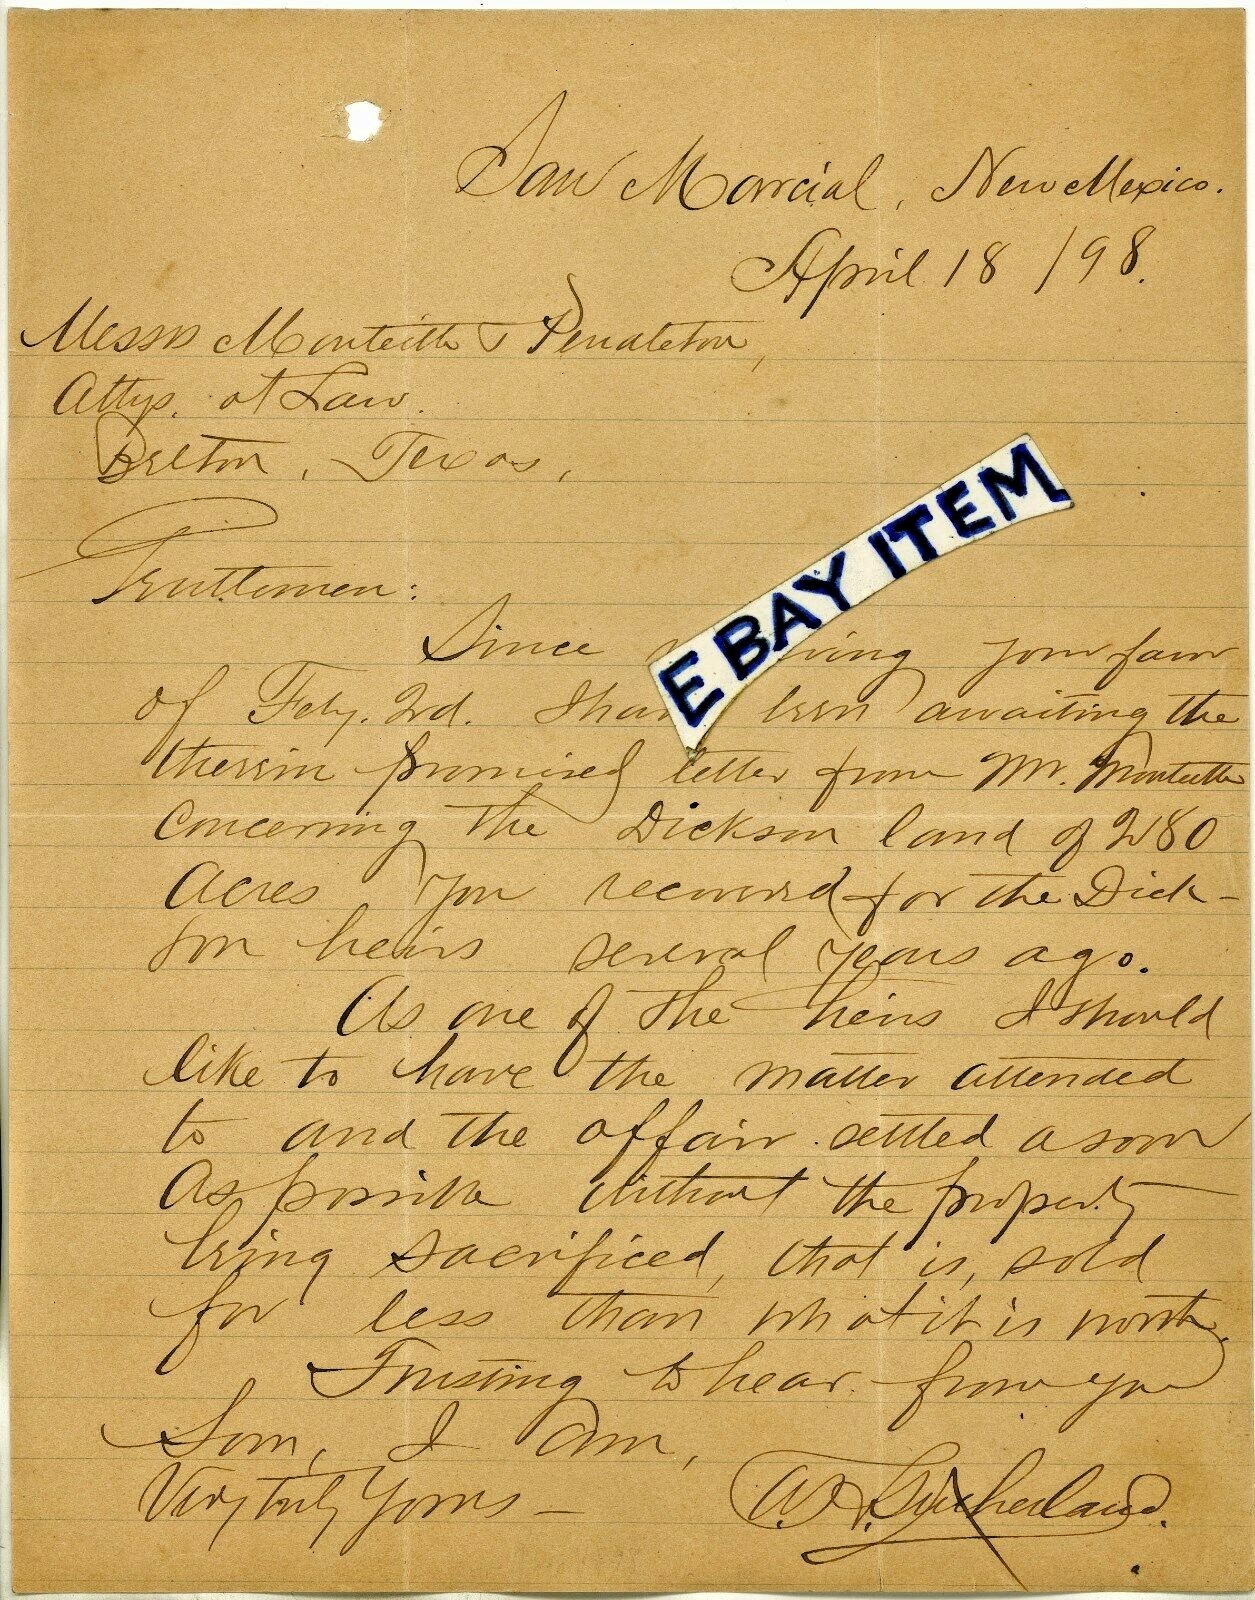 San Marcial, New Mexico.
April 18 /98.
Messrs Monteith & Pendleton,
Attys. at Law.
Belton, Texas,
Gentlemen:
EBAY ITEM
Since your favor
of Feby. 2d. I have been awaiting the
therein promised letter from Mr. Monteith
concerning the Dickson land of 280
acres you recovered for the Dick-
son heirs several years ago.
As one of the heirs I should
like to have the matter attended
to and the affair settled as soon
as possible without the property
being sacrificed, that is, sold
for less than what it is worth.
Trusting to hear from you
Soon, I am,
Very truly yours —
Sutherland.